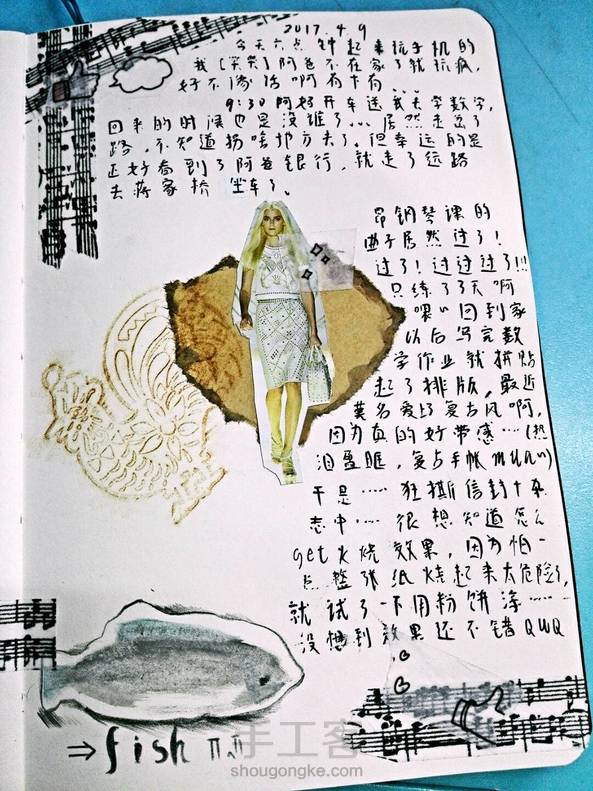 2017.4.9
今天六点钟起来玩手机的
我(笑哭)阿爸不在家了就玩疯,
好不像话啊有木有...
9:30阿妈开车送我去学数学,
回来的时候也是没谁了... 居然走岔了
路,不知道拐啥地方去了。但幸运的是
正好看到了阿爸银行,就走了远路
去蒋家桥 坐车了。
钢琴课的
曲子居然过了!
过了!过过过了!!!
只练了3天啊
喂 回到家
以后写完数
学作业就拼贴
起了排版,最近
莫名爱上复古风啊,
因为真的好带感……(热
泪盈眶,复古手帐
于是…… 狂撕信封+杂
志中…… 很想知道怎么
get火烧效果,因为怕一
整张纸烧起来太危险了,
就试了一下用粉饼涂……
没想到效果还不错QWQ
⇒fish
手工客
shougongke.com